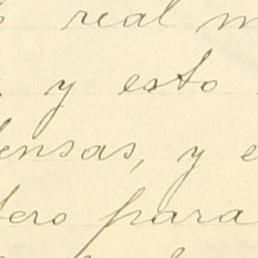 real
y esto
ensas, y e
ero para